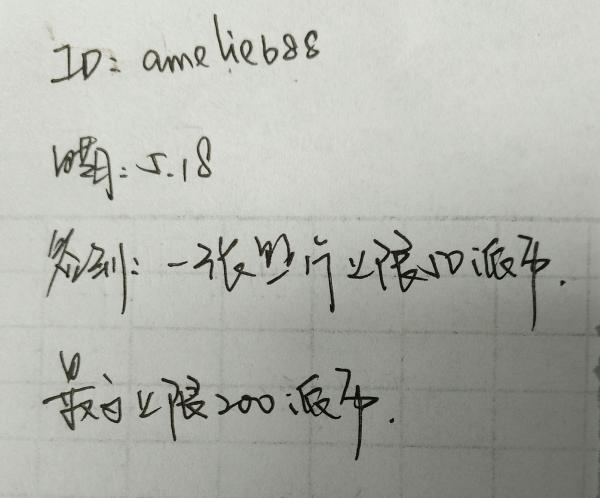 ID: amelie688
日期: 5.18
规则: 一张照片上限50派币.
最高上限200派币.